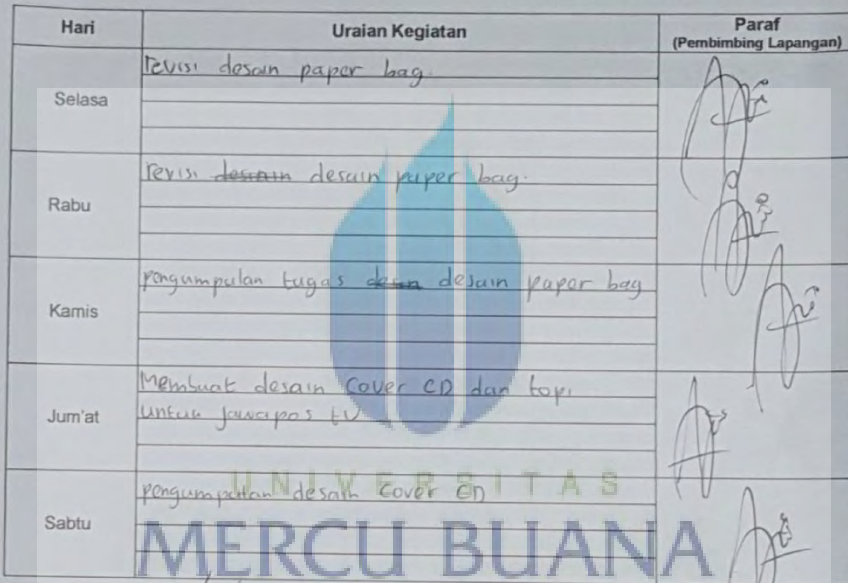 Hari Uraian Kegiatan Paraf
(Pembimbing Lapangan)
Selasa
revisi desain paper bag.
Rabu
revisi desain desain paper bag.
Kamis
pengumpulan tugas desain paper bag
Jum'at
Membuat desain Cover CD dan topi
untuk jawapos tv
Sabtu
pengumpulan desain cover CD
UNIVERSITAS
MERCU BUANA